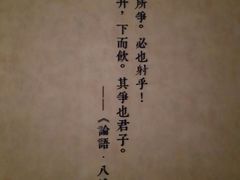 所爭。必也射乎！
升，下而飲。其爭也君子。
——《論語·八